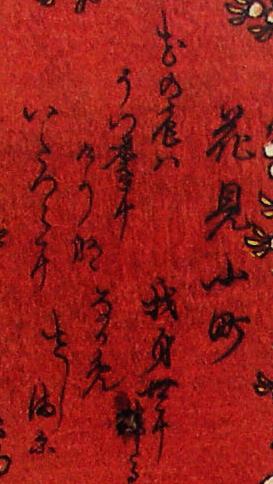 花見小町
花の色は
うつりに
けりな
いたつらに
我身世に
ふる
なかめ
せしまに